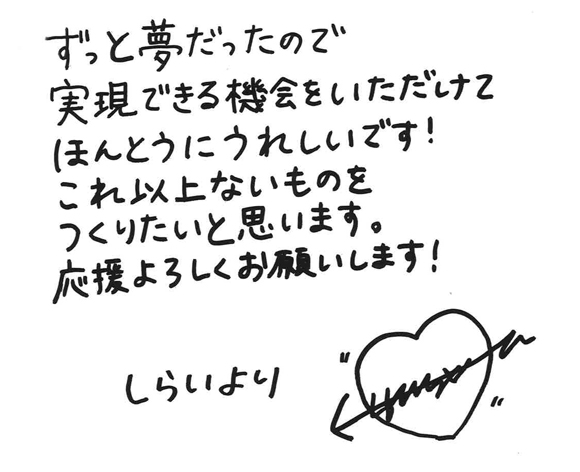 ずっと夢だったので
実現できる機会をいただけて
ほんとうにうれしいです!
これ以上ないものを
つくりたいと思います。
応援よろしくお願いします!
しらいより